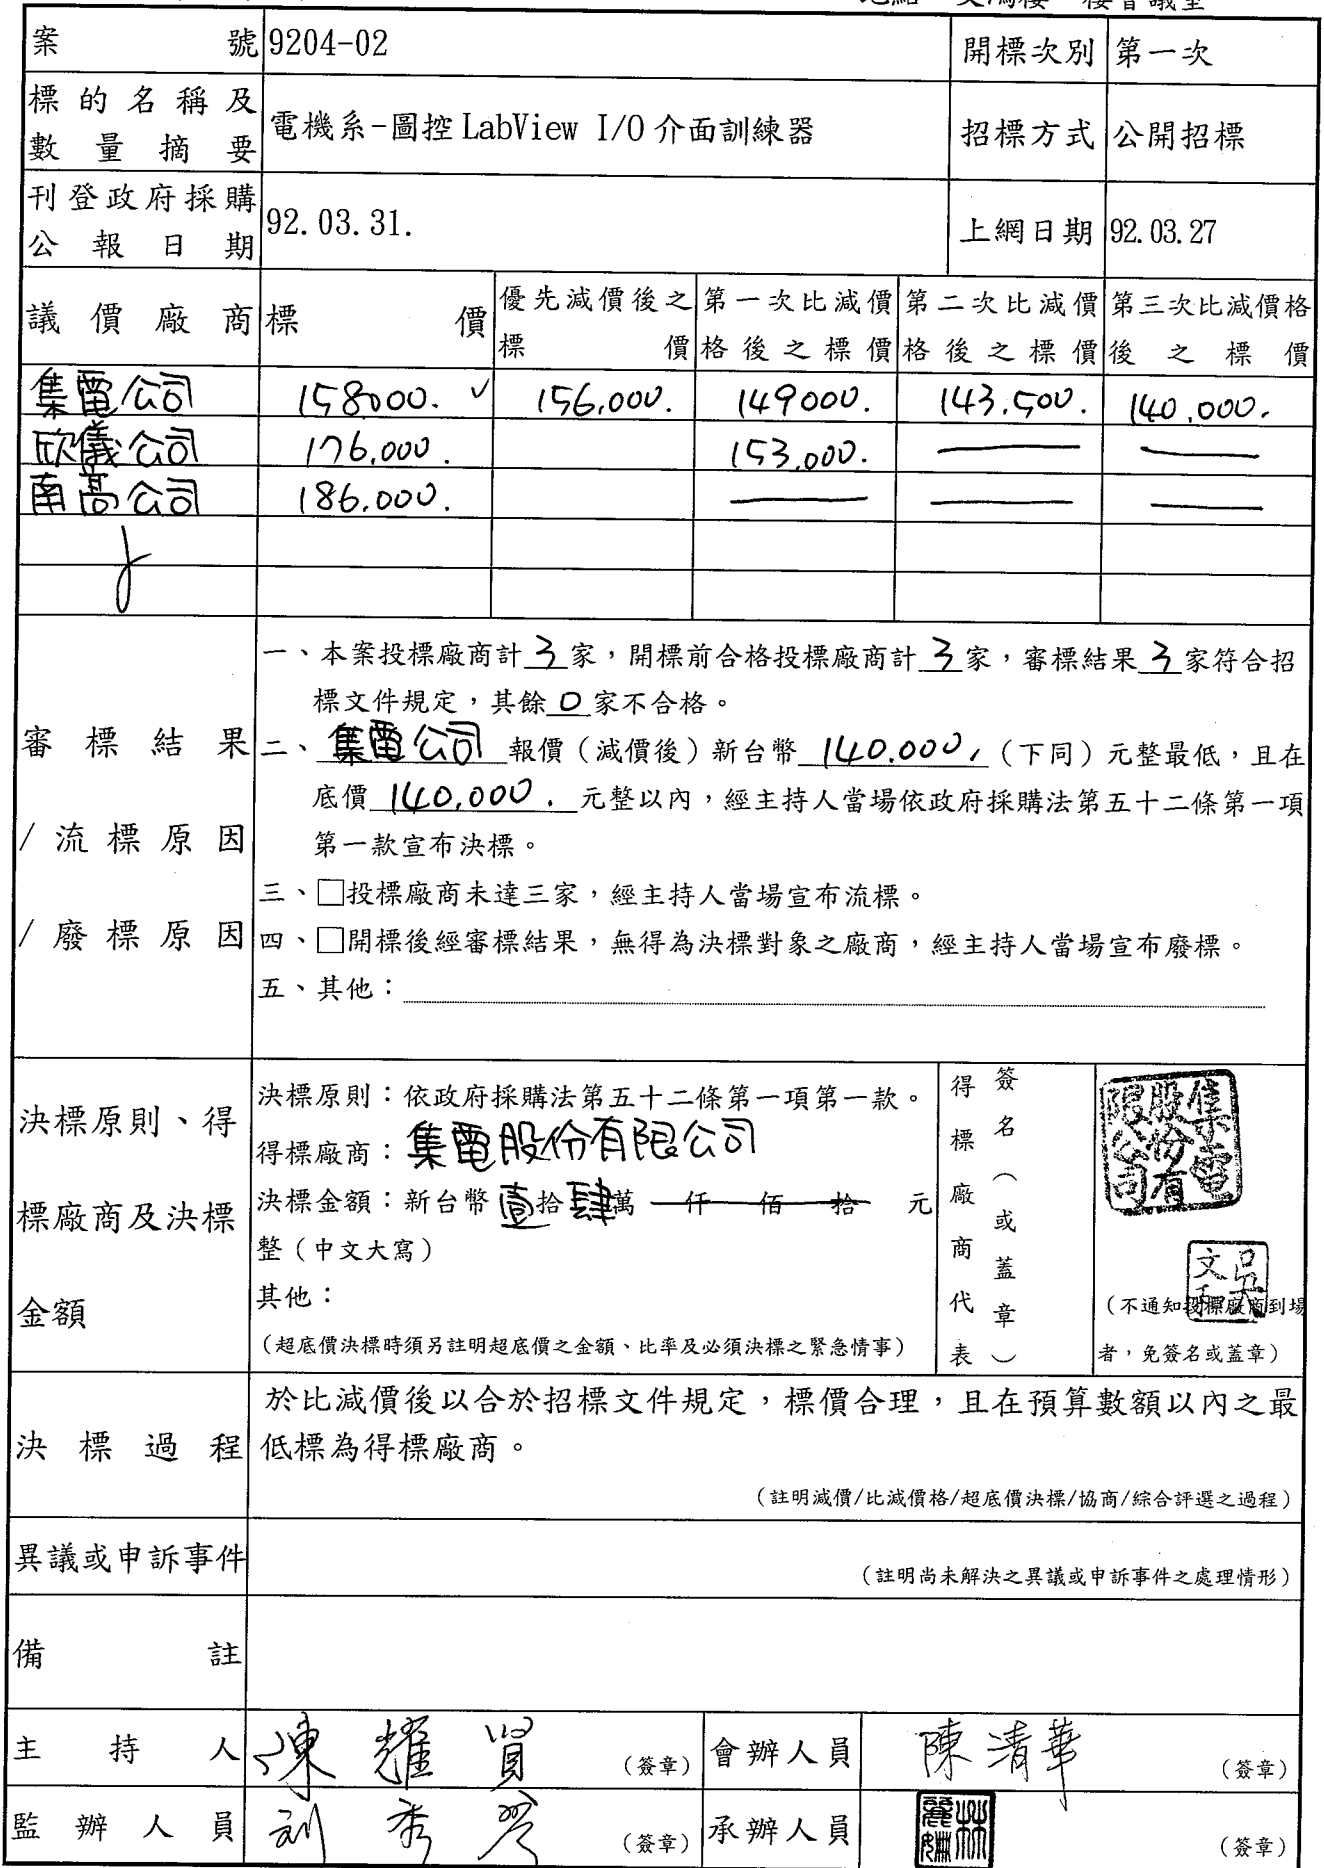 案號 9204-02 開標次別 第一次
標的名稱及數量摘要 電機系-圖控 LabView I/O 介面訓練器 招標方式 公開招標
刊登政府採購公報日期 92.03.31. 上網日期 92.03.27
議價廠商 標價 優先減價後之標價 第一次比減價格後之標價 第二次比減價格後之標價 第三次比減價格後之標價
集電公司 158000. ✓ 156,000. 149000. 143,500. 140,000.
欣儀公司 176,000. 153,000. — —
南高公司 186,000. — — —
審標結果/流標原因/廢標原因
一、本案投標廠商計3家,開標前合格投標廠商計3家,審標結果3家符合招
標文件規定,其餘0家不合格。
二、集電公司 報價(減價後)新台幣 140.000, (下同)元整最低,且在
底價 140,000. 元整以內,經主持人當場依政府採購法第五十二條第一項
第一款宣布決標。
三、□投標廠商未達三家,經主持人當場宣布流標。
四、□開標後經審標結果,無得為決標對象之廠商,經主持人當場宣布廢標。
五、其他:
決標原則、得標廠商及決標金額
決標原則:依政府採購法第五十二條第一項第一款。
得標廠商:集電股份有限公司
決標金額:新台幣壹拾肆萬 仟 佰 拾 元
整(中文大寫)
其他:
(超底價決標時須另註明超底價之金額、比率及必須決標之緊急情事)
得標廠商代表簽名(或蓋章)
集電股份有限公司
吳文和
(不通知投標廠商到場
者,免簽名或蓋章)
決標過程 於比減價後以合於招標文件規定,標價合理,且在預算數額以內之最
低標為得標廠商。
(註明減價/比減價格/超底價決標/協商/綜合評選之過程)
異議或申訴事件 (註明尚未解決之異議或申訴事件之處理情形)
備註
主持人 陳耀賢 (簽章) 會辦人員 陳清華 (簽章)
監辦人員 劉秀 (簽章) 承辦人員 林麗 (簽章)